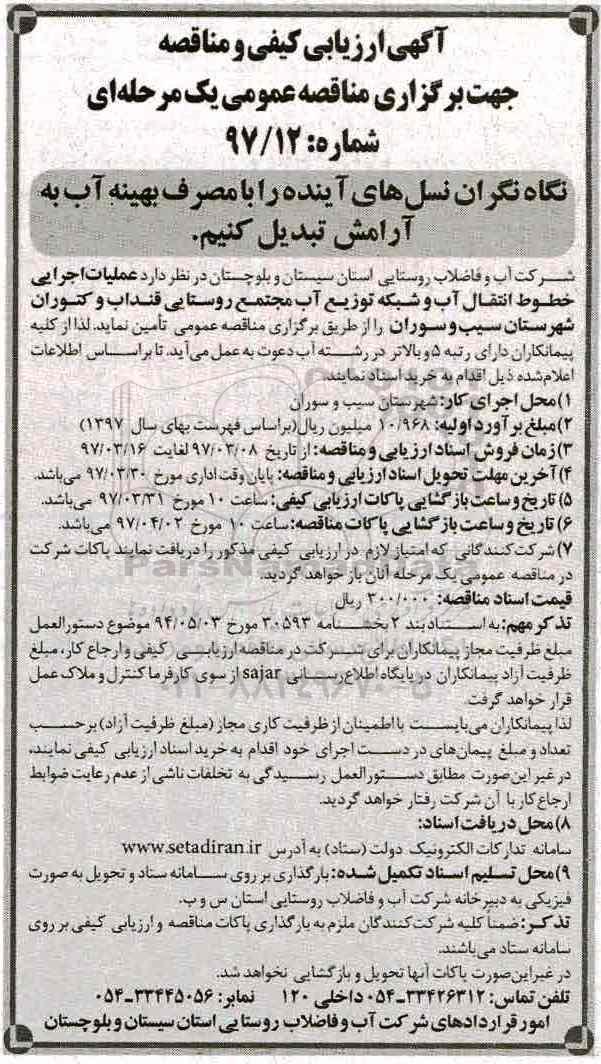 آگهی ارزیابی کیفی و مناقصه
جهت برگزاری مناقصه عمومی یک مرحله‌ای
شماره: ۹۷/۱۲
نگاه نگران نسل‌های آینده را با مصرف بهینه آب به
آرامش تبدیل کنیم.
شرکت آب و فاضلاب روستایی استان سیستان و بلوچستان در نظر دارد عملیات اجرایی
خطوط انتقال آب و شبکه توزیع آب مجتمع روستایی قنداب و کنوران
شهرستان سیب و سوران را از طریق برگزاری مناقصه عمومی تأمین نماید. لذا از کلیه
پیمانکاران دارای رتبه ۵ و بالاتر در رشته آب دعوت به عمل می‌آید، تا براساس اطلاعات
اعلام‌شده ذیل اقدام به خرید اسناد نمایند.
۱) محل اجرای کار: شهرستان سیب و سوران
۲) مبلغ برآورد اولیه: ۱۰/۹۶۸ میلیون ریال (براساس فهرست بهای سال ۱۳۹۷)
۳) زمان فروش اسناد ارزیابی و مناقصه: از تاریخ ۹۷/۰۳/۰۸ لغایت ۹۷/۰۳/۱۶
۴) آخرین مهلت تحویل اسناد ارزیابی و مناقصه: پایان وقت اداری مورخ ۹۷/۰۳/۳۰ می‌باشد.
۵) تاریخ و ساعت بازگشایی پاکات ارزیابی کیفی: ساعت ۱۰ مورخ ۹۷/۰۳/۳۱ می‌باشد.
۶) تاریخ و ساعت بازگشایی پاکات مناقصه: ساعت ۱۰ مورخ ۹۷/۰۴/۰۲ می‌باشد.
۷) شرکت‌کنندگانی که امتیاز لازم در ارزیابی کیفی مذکور را دریافت نمایند پاکات شرکت
در مناقصه عمومی یک مرحله آنان باز خواهد گردید.
قیمت اسناد مناقصه: ۳۰۰/۰۰۰ ریال
تذکر مهم: به استناد بند ۲ بخشنامه ۳۰۵۹۳ مورخ ۹۴/۰۵/۰۳ موضوع دستورالعمل
مبلغ ظرفیت مجاز پیمانکاران برای شرکت در مناقصه ارزیابی کیفی و ارجاع کار، مبلغ
ظرفیت آزاد پیمانکاران در پایگاه اطلاع‌رسانی sajar از سوی کارفرما کنترل و ملاک عمل
قرار خواهد گرفت.
لذا پیمانکاران می‌بایست با اطمینان از ظرفیت کاری مجاز (مبلغ ظرفیت آزاد) برحسب
تعداد و مبلغ پیمان‌های در دست اجرای خود اقدام به خرید اسناد ارزیابی کیفی نمایند،
در غیر این‌صورت مطابق دستورالعمل رسیدگی به تخلفات ناشی از عدم رعایت ضوابط
ارجاع کار با آن شرکت رفتار خواهد گردید.
۸) محل دریافت اسناد:
سامانه تدارکات الکترونیک دولت (ستاد) به آدرس www.setadiran.ir
۹) محل تسلیم اسناد تکمیل شده: بارگذاری بر روی سامانه ستاد و تحویل به صورت
فیزیکی به دبیرخانه شرکت آب و فاضلاب روستایی استان س و ب.
تذکر: ضمناً کلیه شرکت‌کنندگان ملزم به بارگذاری پاکات مناقصه و ارزیابی کیفی بر روی
سامانه ستاد می‌باشند.
در غیر این‌صورت پاکات آنها تحویل و بازگشایی نخواهد شد.
تلفن تماس: ۳۳۴۲۶۳۱۲-۰۵۴ داخلی ۱۲۰ نمابر: ۳۳۴۴۵۰۵۶-۰۵۴
امور قراردادهای شرکت آب و فاضلاب روستایی استان سیستان و بلوچستان
ParsNamadData
۰۲۱-۸۸۳۴۹۶۷۰-۵